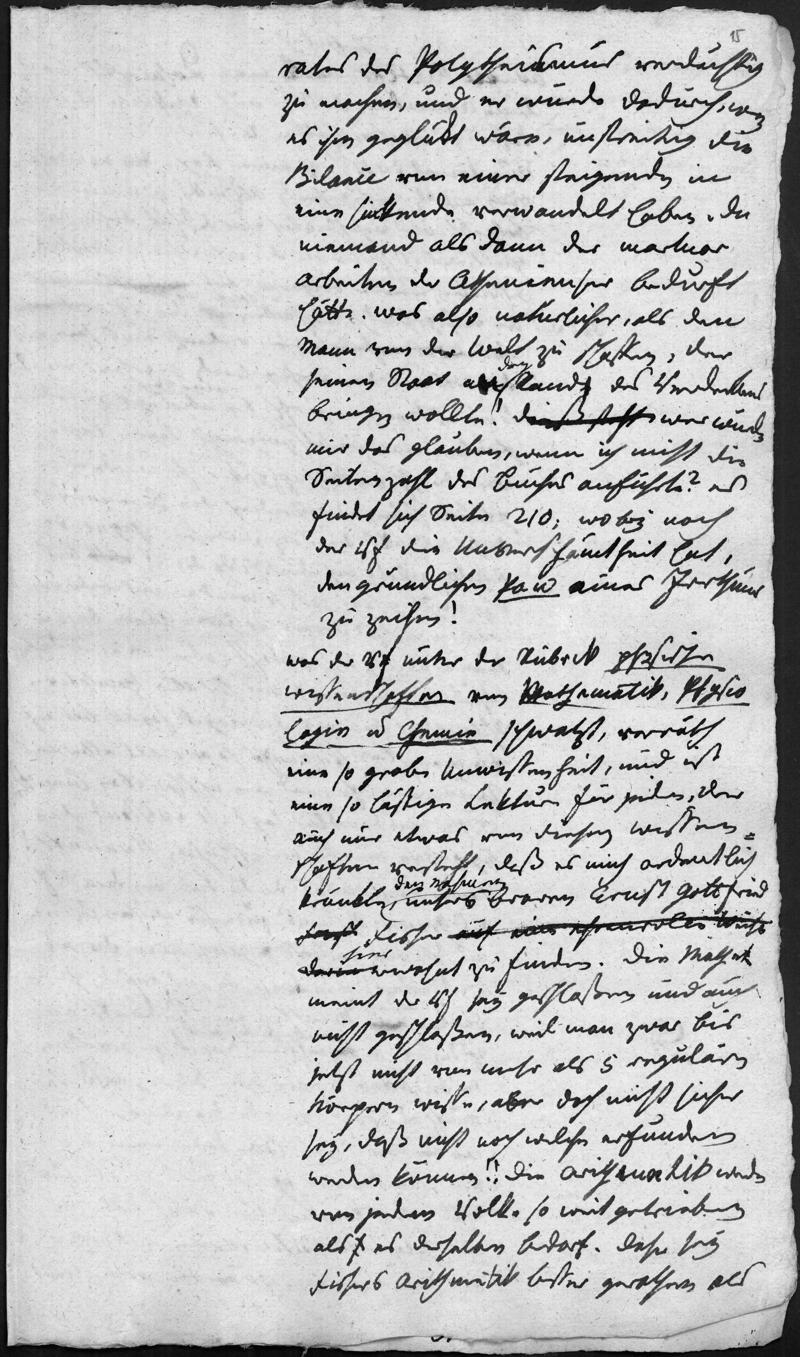 15
rates des Polytheismus verdächtig
zu machen, und er würde dadurch, wenn
es ihm geglükt wäre, unstreitig die
Bilance von einer steigenden in
eine sinkende verwandelt haben, da
niemand als dann der marmor
arbeiten der Athenienser bedurft
hätte. was also natürlicher, als den
Mann von der Welt zu schaffen, der
seinen Staat an den Rand des Verderbens
bringen wollte! wer würde
mir das glauben, wenn ich nicht die
Seitenzahl des Buches anführte? es
findet sich Seite 210; wobey noch
der Vf die Unverschämtheit hat,
den gründlichen Paw eines Irrthums
zu zeihen!
was der Vf unter der Rubrik physische
wissenschaften von Mathematik, Physio
logie u Chemie schwatzt, verräth
eine so grobe Unwissenheit, und ist
eine so lästige Lektüre für jeden, der
auch nur etwas von diesen wissen=
schaften versteht, daß es mich ordentlich
kränkte, den Nahmen unsers braven Ernst Gottfried
Fischer
hier erwähnt zu finden. Die Mathek
meint der Vf sey geschlossen und auch
nicht geschlossen, weil man zwar bis
jetzt nicht von mehr als 5 regulären
Körpern wisse, aber doch nicht sicher
sey, daß nicht noch welche erfunden
werden können!! Die Arithmetik werde
von jedem Volke so weit getrieben
als es derselben bedarf. Daher sey
Fischers Arithmetik besser gerathen als